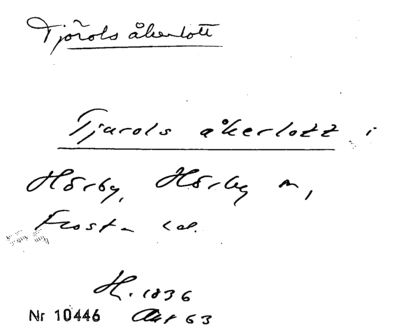 Tjörols åkerlott
Tjurols åkerlott i
Hörby, Hörby m,
Frosta hd.
H. 1836
Nr 10446 Akt 63